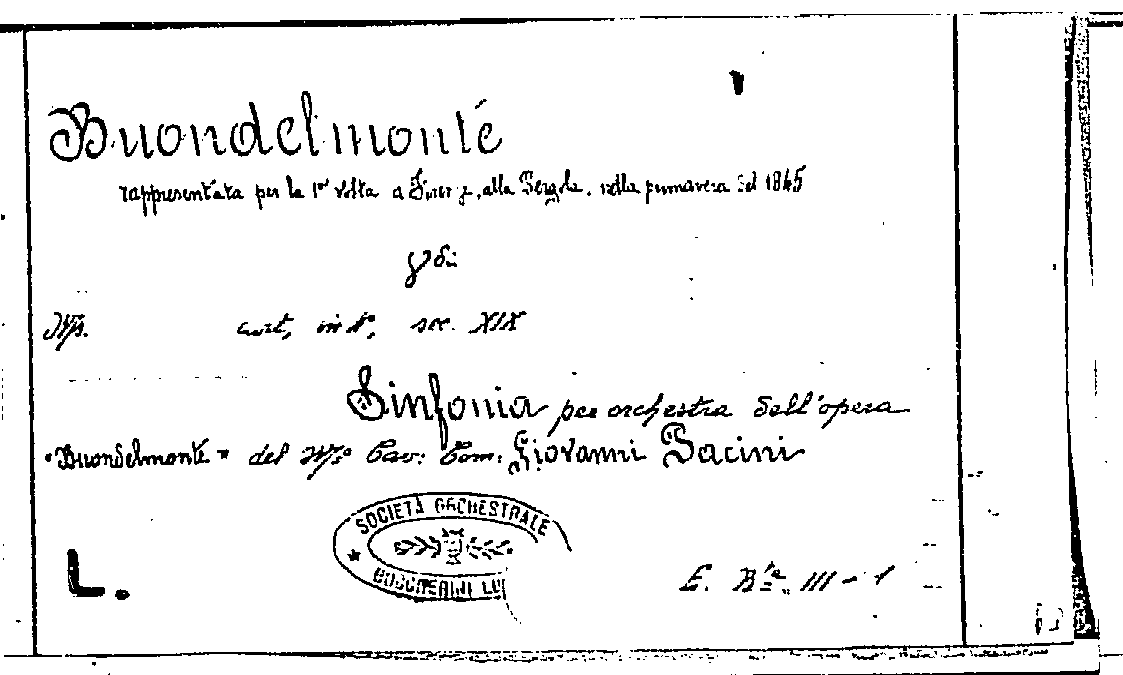 Buondelmonte
rappresentata per la 1ª volta a Firenze, alla Pergola, nella primavera del 1845
Ms. cart, in 4°, sec. XIX
Sinfonia per orchestra dell'opera
"Buondelmonte" del M° Cav: Com: Giovanni Pacini
SOCIETÀ ORCHESTRALE
BOCCHERINI
L.
E. III - 1